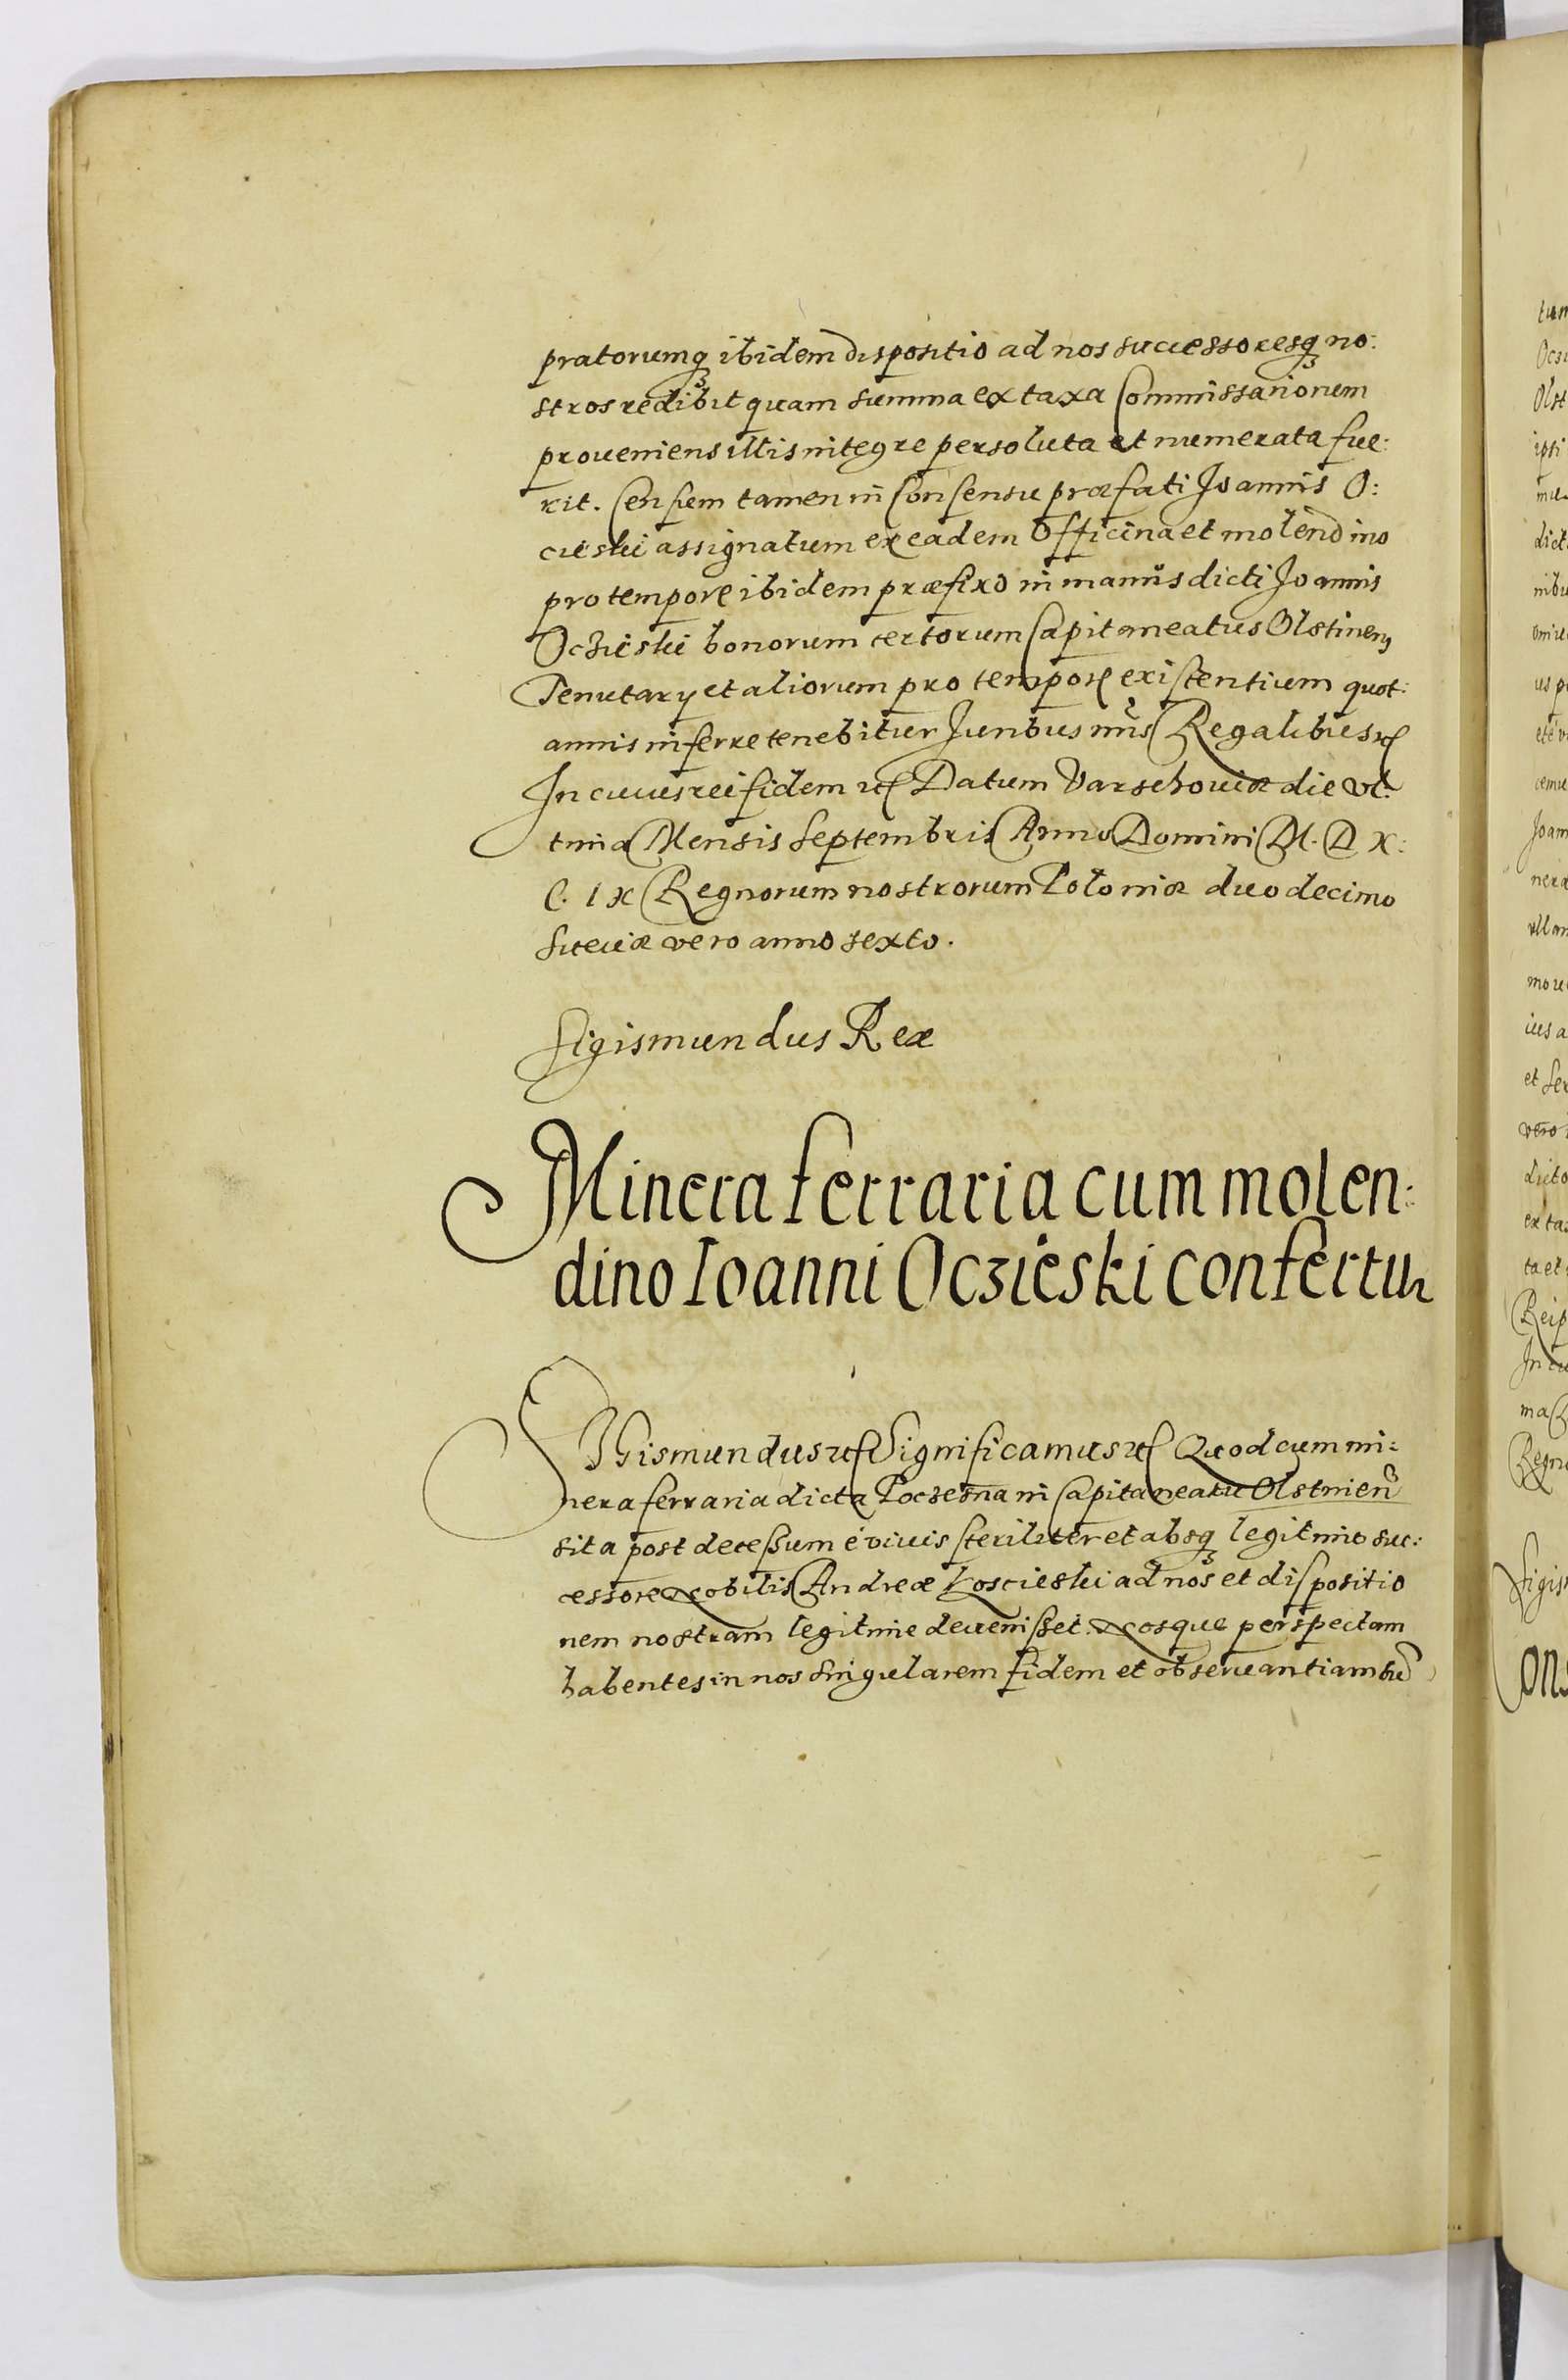 pratorumq₃ ibidem dispositio ad nos successoresq₃ no:
stros redibit quam summa ex taxa Commissariorum
proueniens illis integre persoluta et numerata fue:
rit. Censem tamen in Consensu præfati Joannis O:
cieski assignatum ex eadem Officina et molendino
pro tempore ibidem præfixo in manus dicti Joannis
Oczieski bonorum certorum Capitaneatus Olstinen̄
Tenutarÿ et aliorum pro tempore existentium quot:
annis inferre tenebitur Juribus nr̃is Regalibus etc
In cuius rei fidem etc Datum Varschouiæ die vl:
tima Mensis Septembris Anno Domini M. D X:
C. IX Regnorum nostrorum Poloniæ duodecimo
Sueciæ vero anno sexto.
Sigismundus Rex
Minera ferraria cum molen:
dino Ioanni Oczieski confertur
SIGismundus etc Significamus etc Quod cum mi:
nera ferraria dicta Poczesna in Capitaneatu Olstinen̄
sita post decessum é viuis steriliter et absq₃ legitimo suc:
cessore Nobilis Andreæ Koscieski ad nos et dispositio
nem nostram legitime deuenisset. Nosque perspectam
habentes in nos singularem fidem et obseruantiam
tum
Ocsi
Olst
ipsi
dict
us p
Joam
ull an
ius a
et Ser
vero
dicto
ex ta
ta et
Reip
In cu
Regn
Sigis
Cons